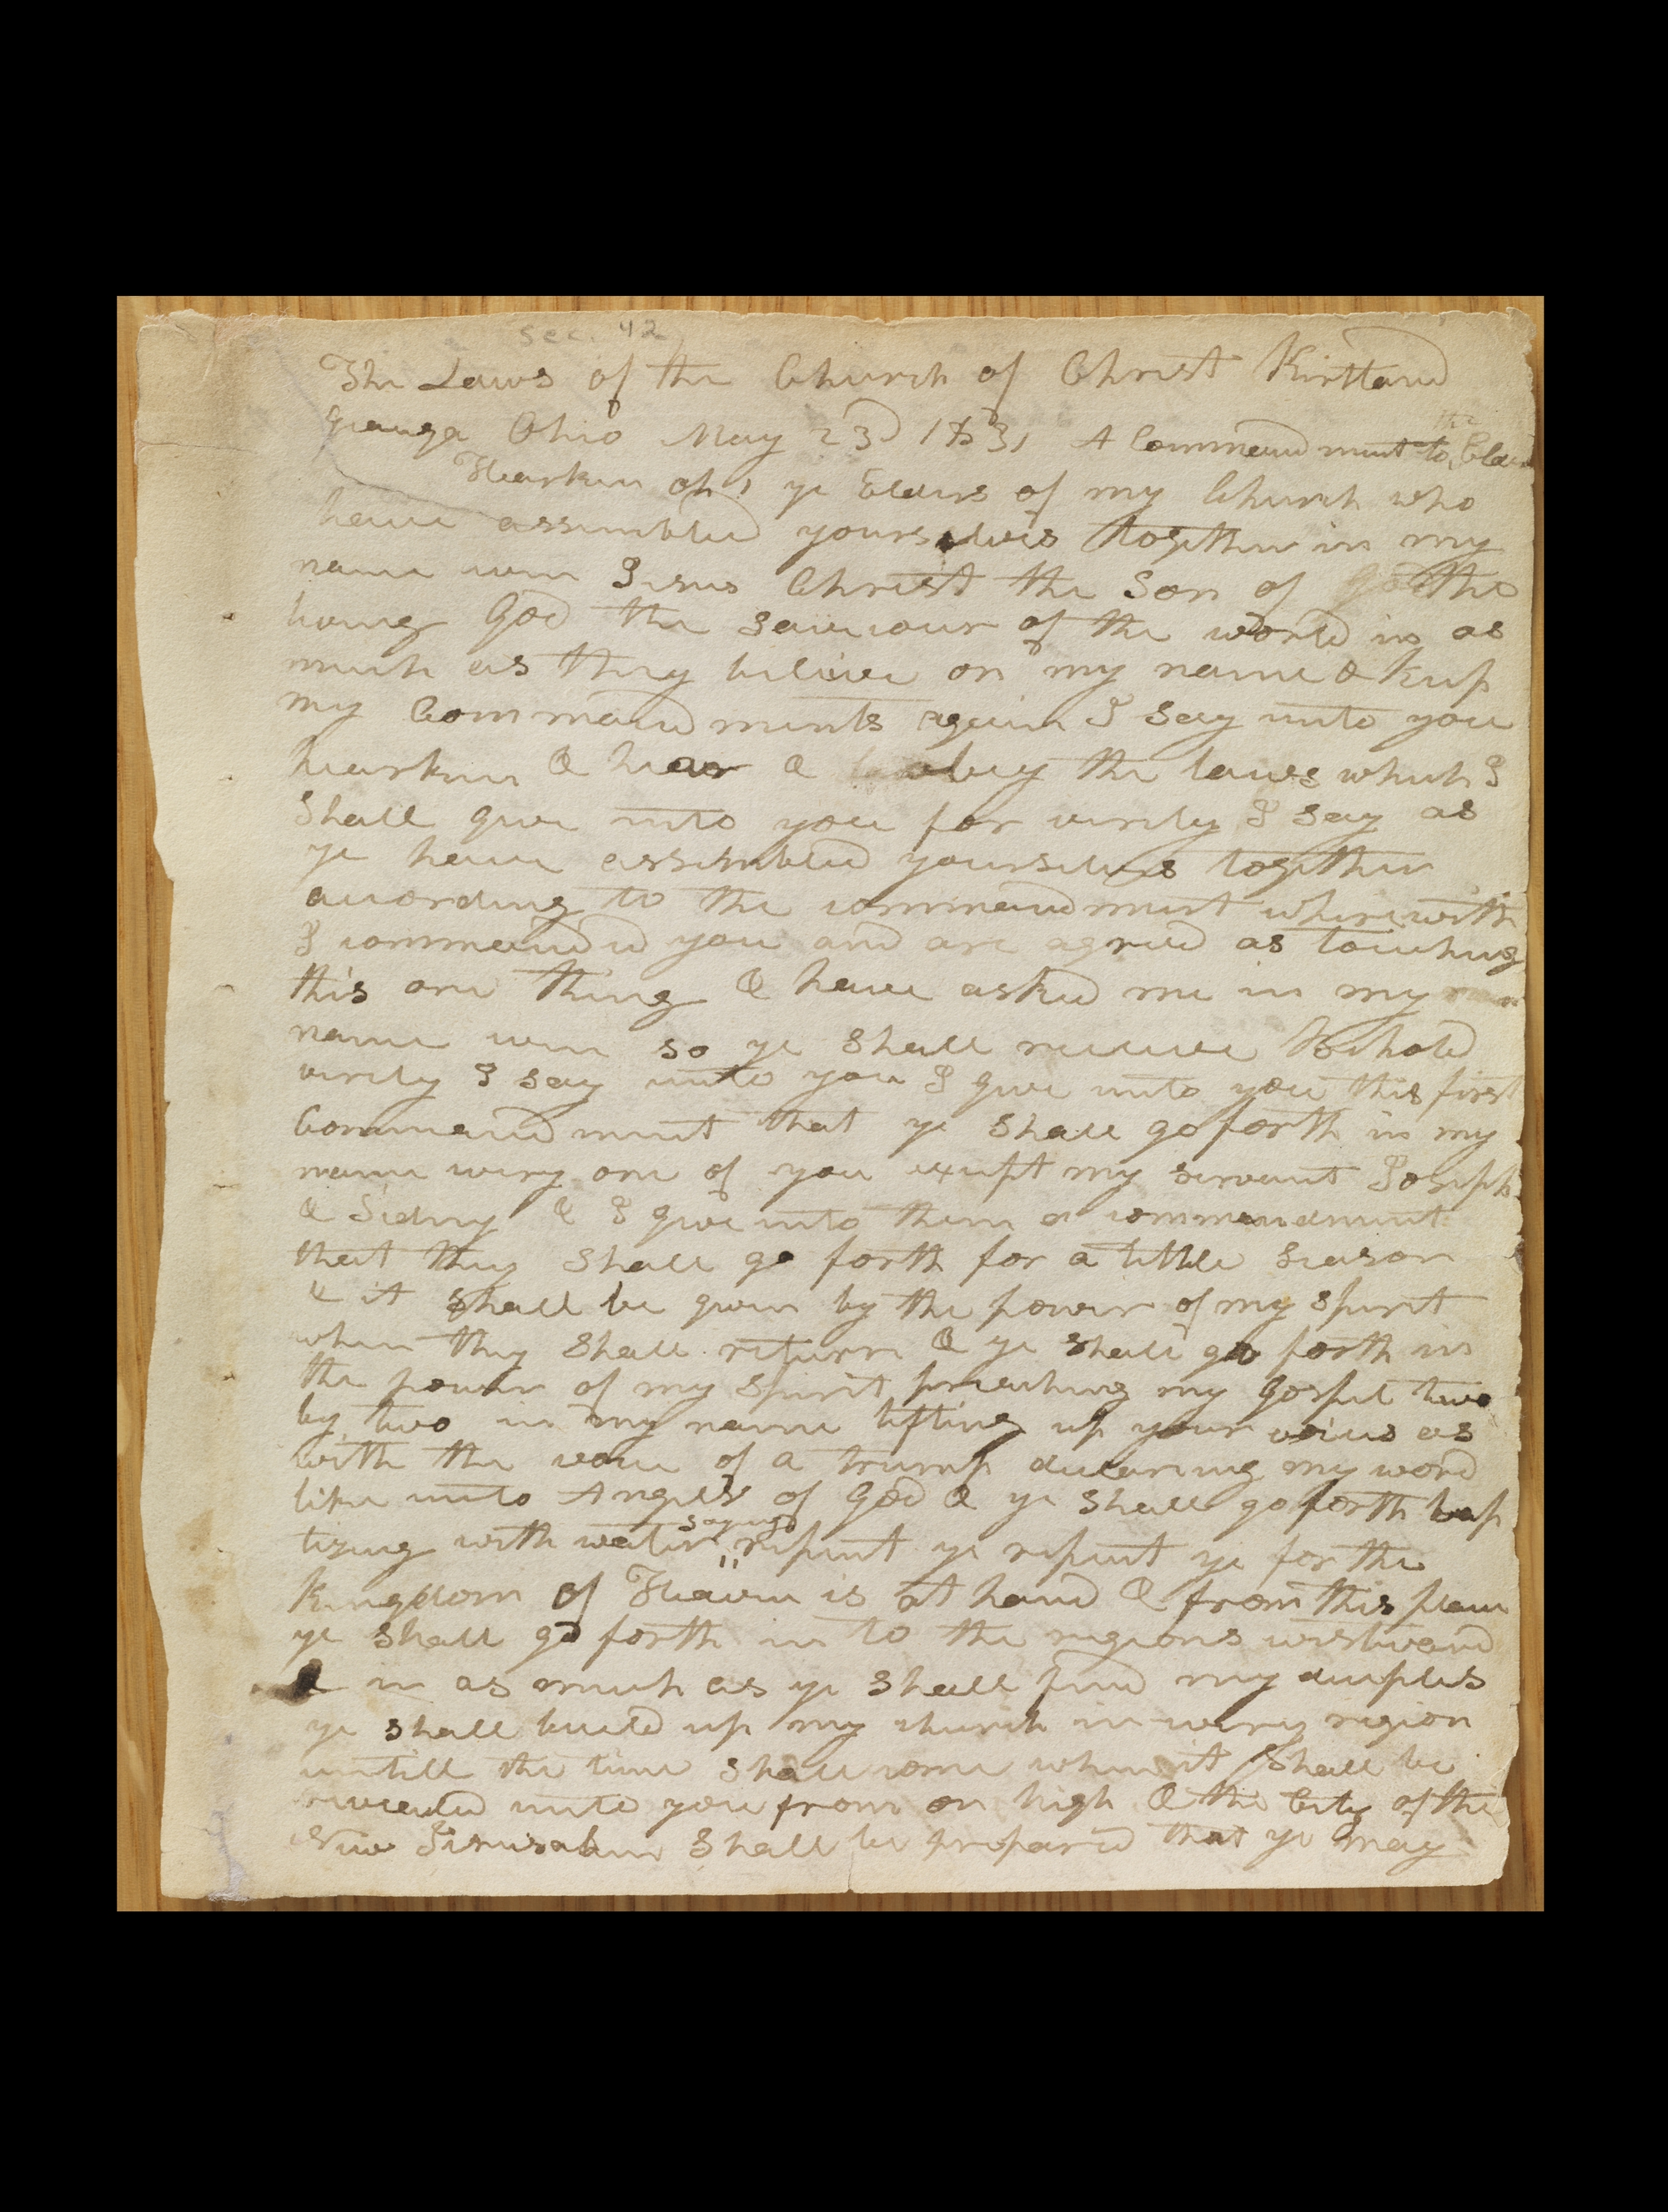 sec. 42
The Laws of the Church of Christ Kirtland
Geauga Ohio May 23d 1831 A Commandment to the Elders
Hearken oh, ye Elders of my Church who
have assembled yourselves together in my
name even Jesus Christ the Son of God the
living God the saviour of the world in as
much as they believe on my name & keep
my Commandments again I say unto you
hearken & hear & obey the laws which I
Shall give unto you for verily I say as
ye have assembled yourselves together
according to the commandment wherewith
I commanded you and are agreed as touching
this one thing & have asked me in my
name even so ye Shall receive Behold
verily I say unto you I give unto you this first
Commandment that ye shall go forth in my
name every one of you except my servant Joseph
& Sidney & I give unto them a commandment
that they Shall go forth for a little Season
& it Shall be given by the power of my Spirit
when they Shall return & ye Shall go forth in
the power of my Spirit preaching my Gospel two
by two in my name lifting up your voices as
with the voice of a trump declaring my word
like unto Angels of God & ye Shall go forth bap
tizing with water saying repent ye repent ye for the
Kingdom of Heaven is at hand & from this place
ye Shall go forth in to the regions westward
& in as much as ye Shall find my deciples
ye shall build up my church in every region
untill the time Shall come when it Shall be
revealed unto you from on high & the City of the
New Jerusalem Shall be prepared that ye may